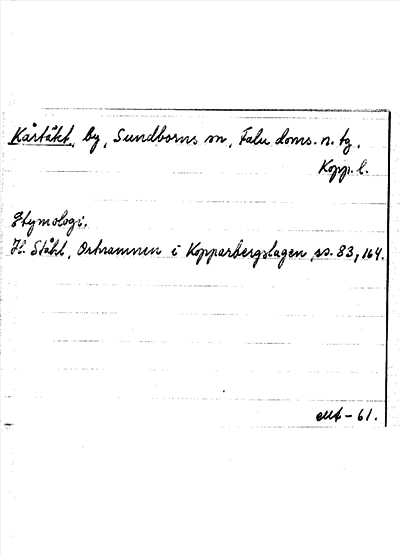 Kårtäkt, by, Sundborns sn, Falu doms. n. tg.
Kopp. l.
Etymologi.
H. Ståhl, Ortnamnen i Kopparbergslagen, ss. 83, 164.
-61.